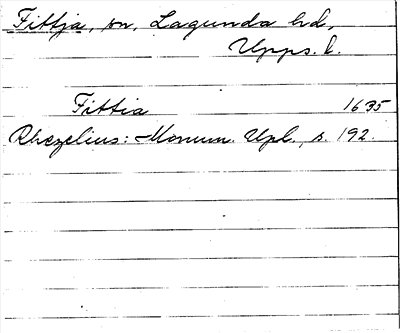 Fittja, sn, Lagunda hd,
Upps. l.
Fittia 1635
Rhezelius: Monum. Upl., s. 192.